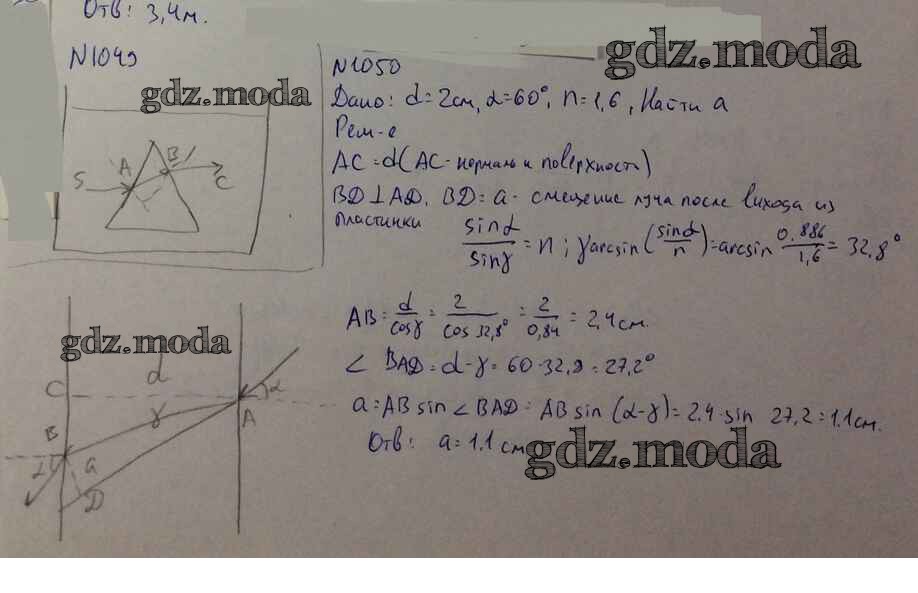 Отв: 3,4м.
N1049
gdz.moda
A
B
S
C
gdz.moda
N1050
Дано: d=2см, α=60°, n=1,6, Найти a
Реш-е
AC=d(AC-нормаль к поверхности)
BD⊥AD. BD=a-смещение луча после выхода из
пластинки
sinα/sinγ=n; γarcsin(sinα/n)=arcsin 0.886/1,6=32,8°
AB=d/cosγ=2/cos 32,8°=2/0,84=2,4см.
∠BAD=α-γ=60-32,8=27,2°
a=AB sin∠BAD=AB sin(α-γ)=2.4·sin 27,2=1.1см.
Отв: a=1.1см
gdz.moda
gdz.moda
d
C
γ
α
A
B
α
a
D